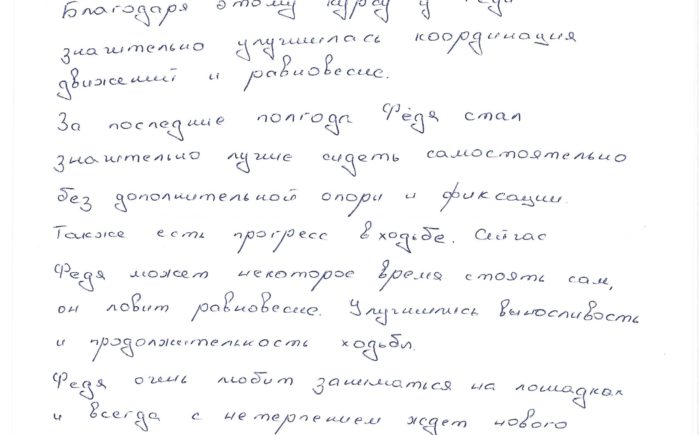 Благодаря этому курсу у Феди
значительно улучшилась координация
движений и равновесие.
За последние полгода Федя стал
значительно лучше сидеть самостоятельно
без дополнительной опоры и фиксации.
Также есть прогресс в ходьбе. Сейчас
Федя может некоторое время стоять сам,
он ловит равновесие. Улучшились выносливость
и продолжительность ходьбы.
Федя очень любит заниматься на лошадках
и всегда с нетерпением ждет нового